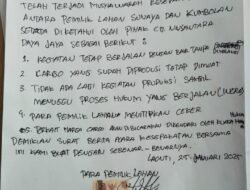 TELAH TERJADI MUSYAWARAH KESEPAKATAN
ANTARA PEMILIK LAHAN SUWAYA DAN KUMBOLAN
SETADA DIKETAHUI OLEH PIHAK CV. NUSANTARA
DAYA JAYA SEBAGAI BERIKUT :
1. KEGIATAN TETAP BERJALAN DENGAN BAIK TANPA
2. CARGO YANG SUDAH DIPRODUKSI TETAP DIMUAT
3. TIDAK ADA LAGI KEGIATAN PRODUKSI SAMBIL
MENUNGGU PROSES HUKUM YANG BERJALAN
4. PARA PEMILIK LAHAN MENITIPKAN CEKER
TERKAIT HARGA CARGO AKAN DIBICARAKAN
DEMIKIAN SURAT BERITA ACARA KESEPAKATAN BERSAMA
INI KAMI BUAT DENGAN SEBENAR - BENARNYA.
LAOUTI, 25 JANUARI 2025
PARA PEMILIK LAHAN